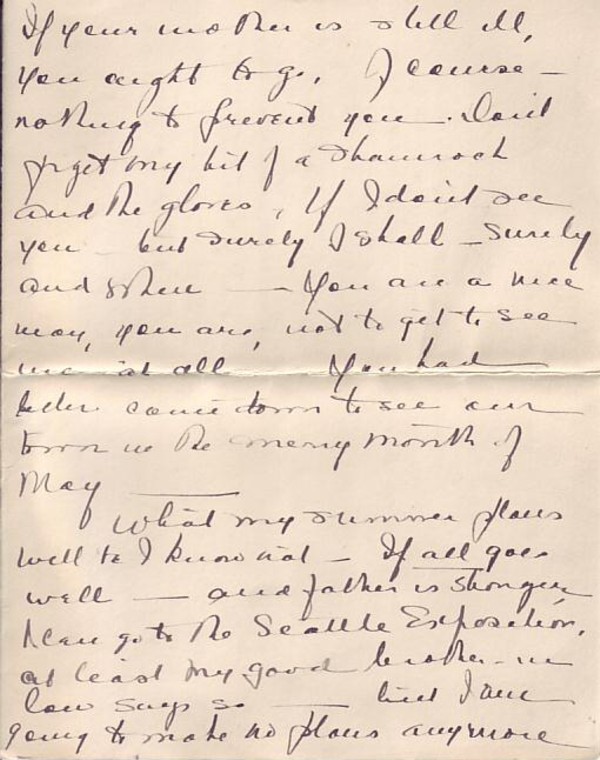 If your mother is still ill,
you ought to go. Of course –
nothing to prevent you. Don't
forget my bit of a Shamrock
and the gloves, If I don't see
you – but surely I shall – surely
and when — You are a nice
man, you are, not to get to see
me at all You had
better come down to see our
town in the merry month of
May —
What my summer plans
will be I know not – If all goes
well — and father is stronger,
I can go to the Seattle Exposition,
at least my good brother-in
law says so — but I am
going to make no plans anymore